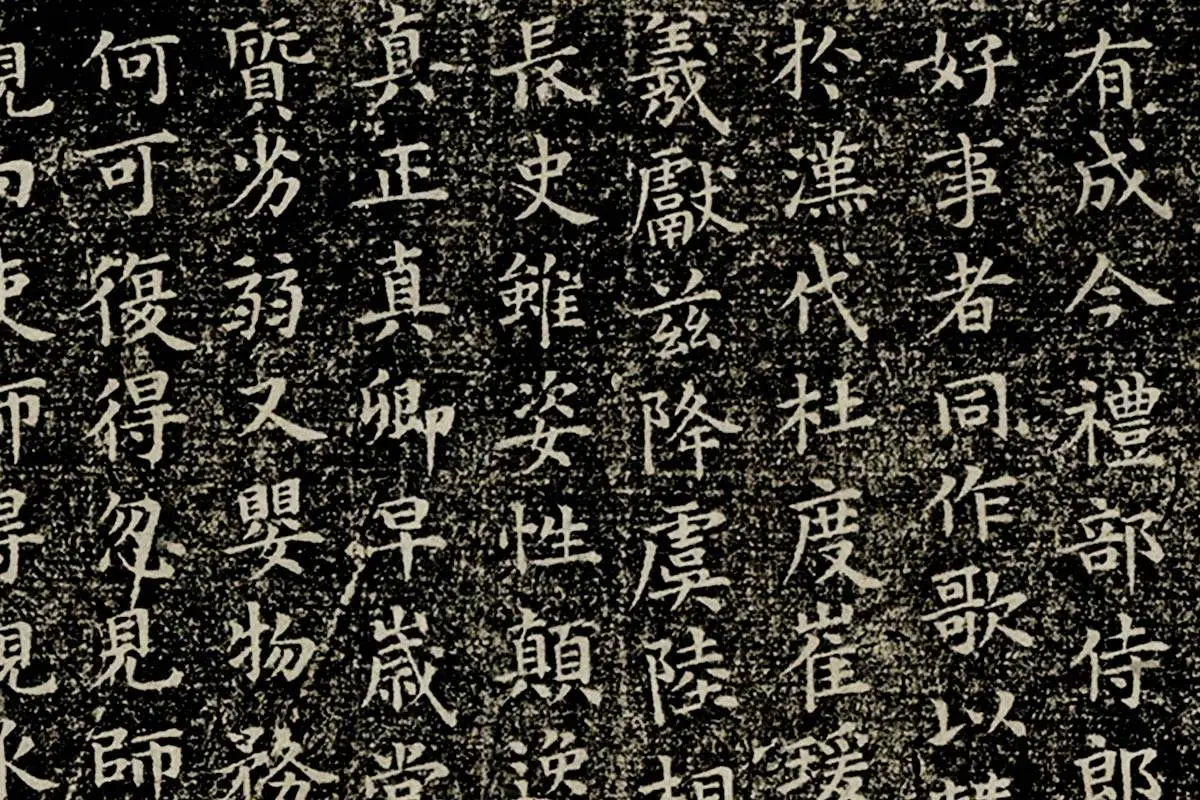 有成今禮部侍郎
好事者同作歌以
於漢代杜度崔瑗
羲獻茲降虞陸相
長史雖姿性顛逸
真正真卿早歲常
質劣弱又嬰物務
何可復得忽見師